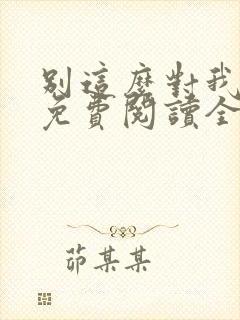 別這麼對我
免費閱讀全
茆某某